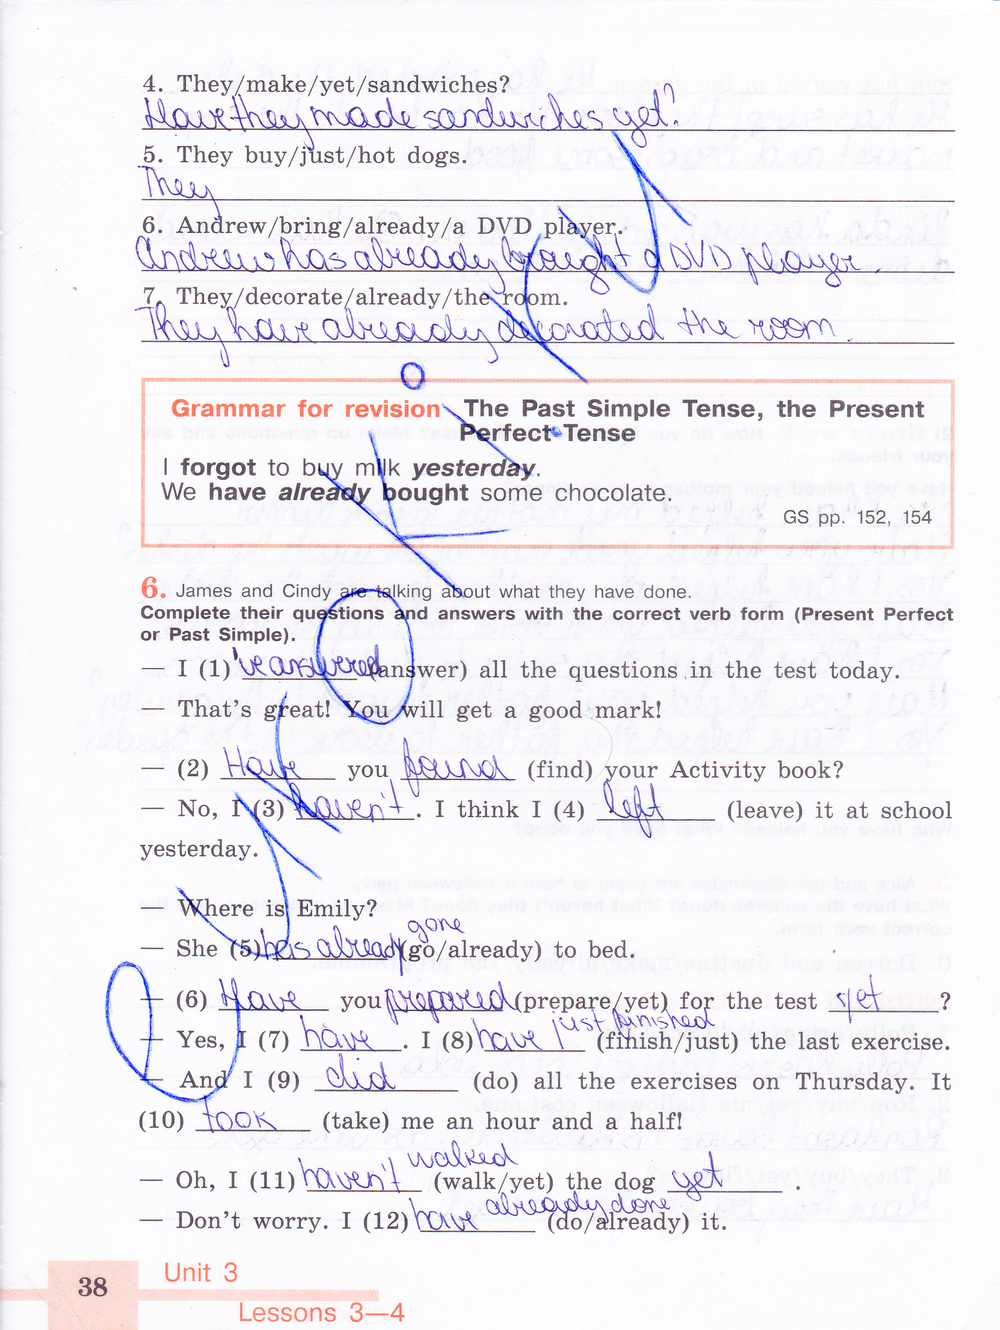 4. They/make/yet/sandwiches?
Have they made sandwiches yet?
5. They buy/just/hot dogs.
They
6. Andrew/bring/already/a DVD player.
Andrew has already brought a DVD player.
7. They/decorate/already/the room.
They have already decorated the room.
Grammar for revision The Past Simple Tense, the Present
Perfect Tense
I forgot to buy milk yesterday.
We have already bought some chocolate.
GS pp. 152, 154
6. James and Cindy are talking about what they have done.
Complete their questions and answers with the correct verb form (Present Perfect
or Past Simple).
— I (1) 've answered (answer) all the questions in the test today.
— That's great! You will get a good mark!
— (2) Have you found (find) your Activity book?
— No, I (3) haven't. I think I (4) left (leave) it at school
yesterday.
— Where is Emily?
gone
— She (5) has already (go/already) to bed.
— (6) Have you prepared (prepare/yet) for the test yet ?
just finished
— Yes, I (7) have. I (8) have (finish/just) the last exercise.
— And I (9) did (do) all the exercises on Thursday. It
(10) took (take) me an hour and a half!
walked
— Oh, I (11) haven't (walk/yet) the dog yet.
already done
— Don't worry. I (12) have (do/already) it.
38
Unit 3
Lessons 3—4